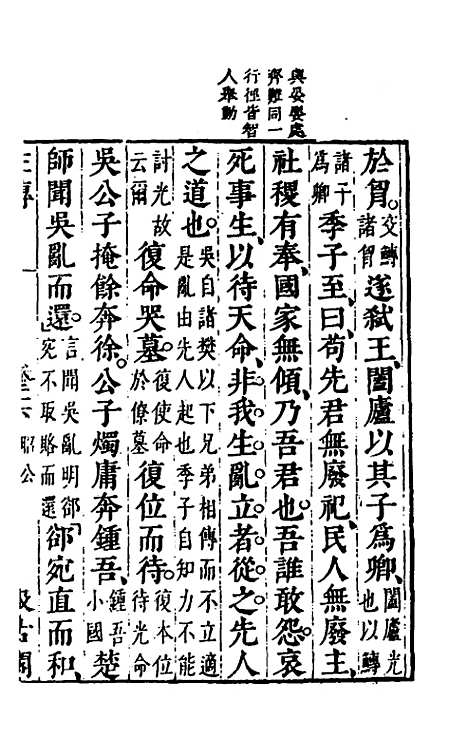 與晏嬰處
齊難同一
行徑皆智
人舉動
於胷。交鱄諸胷遂弑王、闔廬以其子爲卿、闔廬光也以鱄
諸子爲卿季子至、曰、苟先君無廢祀、民人無廢主、
社稷有奉、國家無傾、乃吾君也。吾誰敢怨。哀
死事生、以待天命、非我生亂。立者從之。先人
之道也。吳自諸樊以下兄弟相傳而不立適是亂由先人起也季子自知力不能
討光故云爾復命哭墓。復使命於僚墓復位而待。復本位待光命
吳公子掩餘奔徐。公子燭庸奔鍾吾、鍾吾小國楚
師聞吳亂而還。言聞吳亂明郤宛不取賂而還郤宛直而和、
昭公